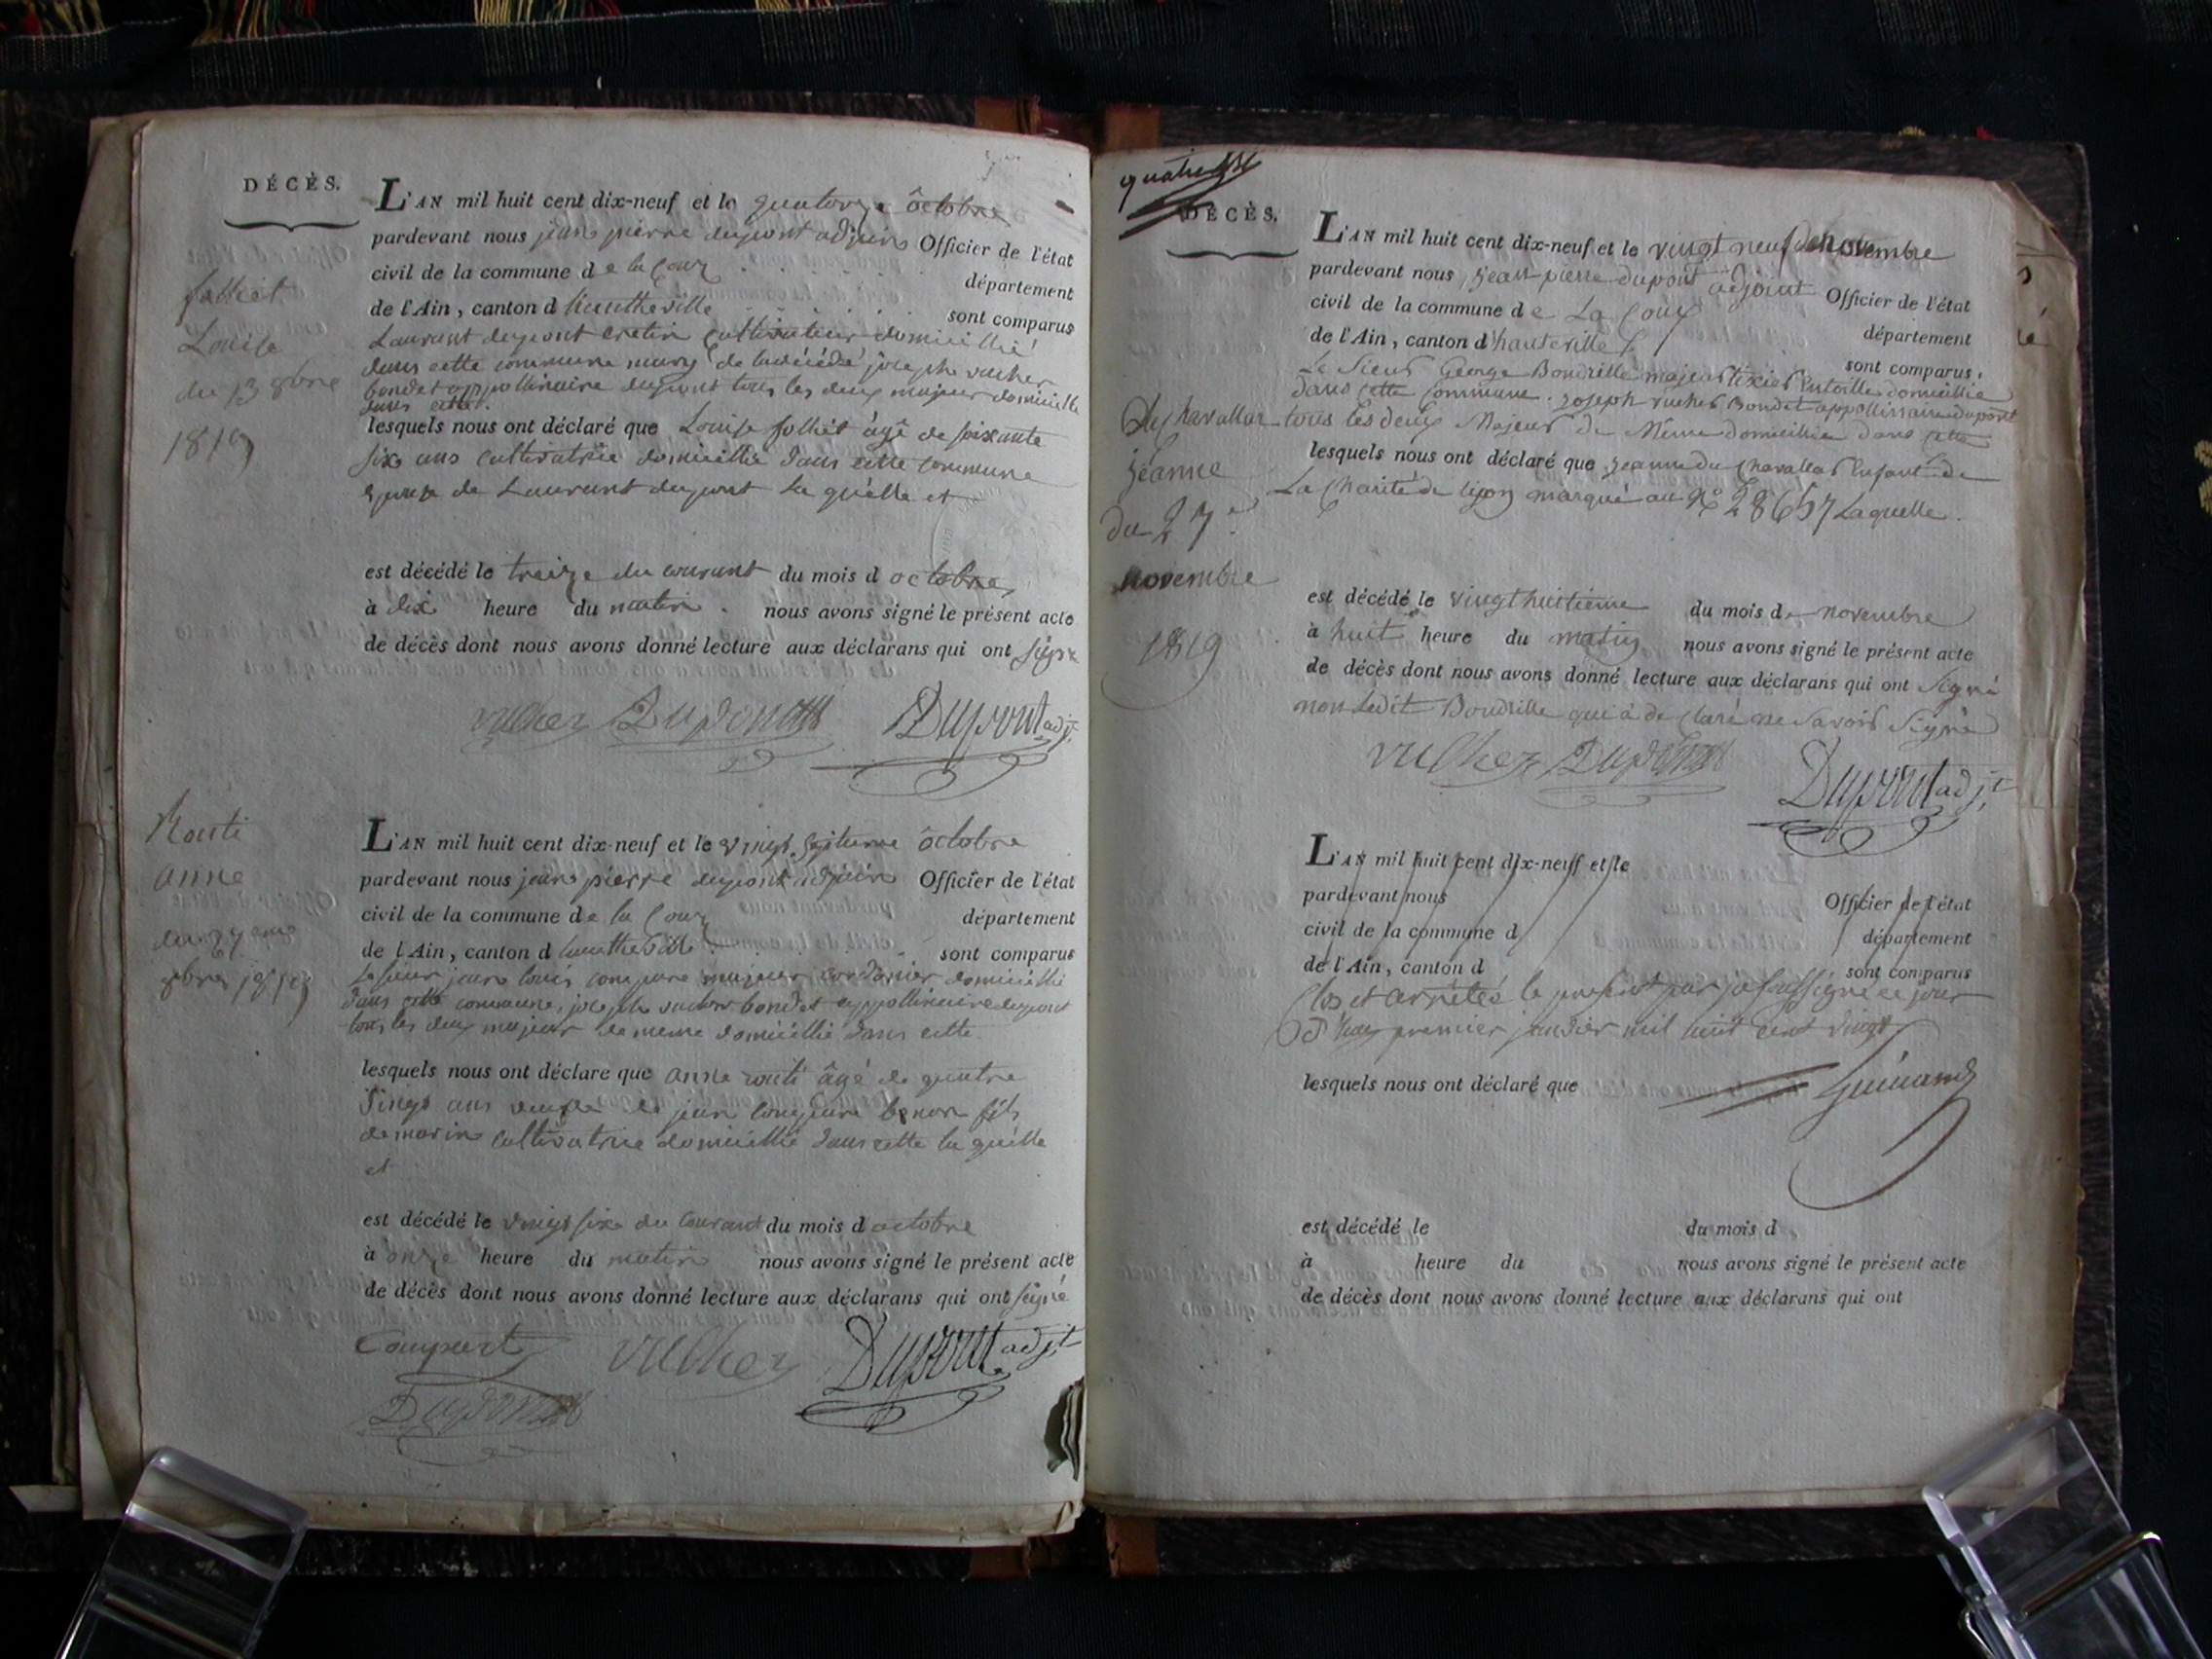 DÉCÈS.
folliet
Louise
du 13 8bre
1819
L'AN mil huit cent dix-neuf et le quatorze octobre
pardevant nous jean pierre dupont adjoin Officier de l'état
civil de la commune de la Coux département
de l'Ain, canton d hautheville sont comparus
Laurant dupont cretin cultivateur domicillié
dans cette commune mary de la décédé joseph vucher
bondet appollinaire dupont tous les deux majeur domicillie
dans cette.
lesquels nous ont déclaré que Louise folliet âgé de soixante
six ans cultivatrice domicillie dans cette commune
epouse de Laurant dupont la quelle et
est décédé le treize du courant du mois d octobre
à dix heure du matin. nous avons signé le présent acte
de décès dont nous avons donné lecture aux déclarans qui ont signé
vucher Dupont Dupont adjt
Routi
anne
du 27eme
8bre 1819
L'AN mil huit cent dix-neuf et le vingt septieme octobre
pardevant nous jean pierre dupont adjoin Officier de l'état
civil de la commune de la Coux département
de l'Ain, canton d hautheville sont comparus
Le sieur jean louis compare majeur cordonier domicillié
dans cette commune, joseph vucher bondet appollinaire dupont
tous les deux majeur de meme domicillié dans cette
lesquels nous ont déclare que anne routi âgé de quatre
vingt ans veuve de jean compare fils
de marin cultivatrice domicillie dans cette la quelle
et
est décédé le vingt six du courant du mois d octobre
à onze heure du matin nous avons signé le présent acte
de décès dont nous avons donné lecture aux déclarans qui ont signé
Compart vucher Dupont adjt
Dupont
quatre
DÉCÈS.
du chavallar
jéanne
du 27e
novembre
1819
L'AN mil huit cent dix-neuf et le vingt neuf novembre
pardevant nous, jean pierre dupont adjoint Officier de l'état
civil de la commune de La Coux département
de l'Ain, canton d'hauteville sont comparus,
Le Sieur George Boudrille majeur tixier en toille domicillié
dans cette Commune. joseph vucher Bondet appollinaire dupont
tous les deux Majeur de Même domicillie dans cette
lesquels nous ont déclaré que jeanne du Chavallar Enfant de
La Charité de lion marqué au No 28657 Laquelle.
est décédé le vingt huitième du mois de novembre
à huit heure du matin nous avons signé le présent acte
de décès dont nous avons donné lecture aux déclarans qui ont signé
non Ledit Boudrille qui à de claré ne savoir Signé
vucher Dupont Dupont adjt
L'AN mil huit cent dix-neuf et le
pardevant nous Officier de l'état
civil de la commune d département
de l'Ain, canton d sont comparus
Clos et arrêtés le present par ce jour
premier janvier mil huit cent vingt
lesquels nous ont déclaré que
est décédé le du mois d
à heure du nous avons signé le présent acte
de décès dont nous avons donné lecture aux déclarans qui ont